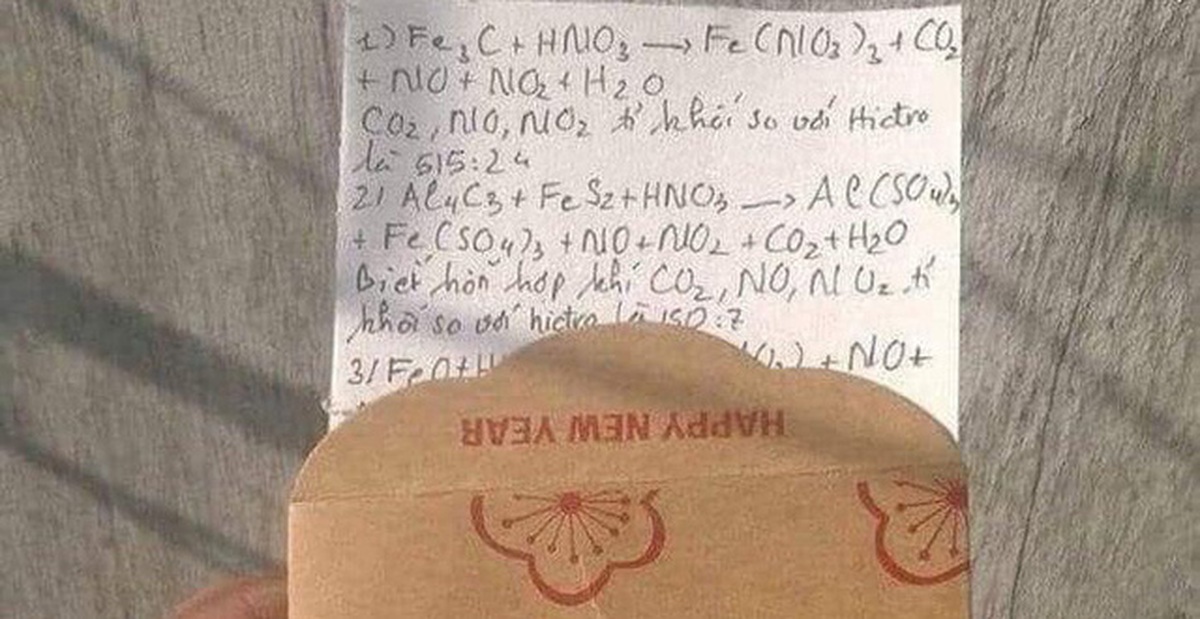 1) Fe3C + HNO3 → Fe(NO3)3 + CO2
+ NO + NO2 + H2O
CO2, NO, NO2 tỉ khối so với Hiđro
là 515:24
2) Al4C3 + FeS2 + HNO3 → Al(SO4)3
+ Fe(SO4)3 + NO + NO2 + CO2 + H2O
Biết hỗn hợp khí CO2, NO, NO2 tỉ
khối so với hiđro là 150:7
3) FeO + + NO +
HAPPY NEW YEAR